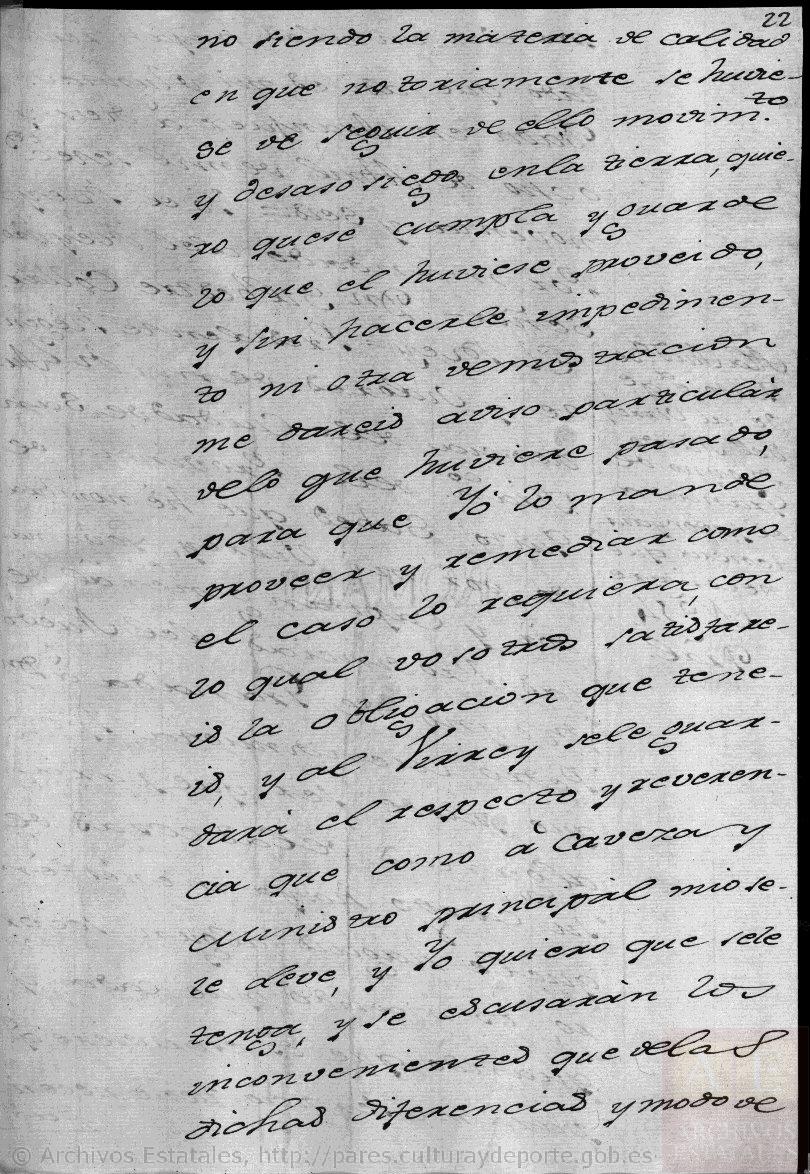 22
no siendo la materia de calidad
en que notoriamente se huvie-
se de seguir de ello movim.to
y desasosiego en la tierra, quie-
ro quese cumpla y guarde
lo que el huviese proveido,
y sin hacerle impedimen-
to ni otra demostracion
me dareis aviso particular
delo que huviere pasado,
para que Yo lo mande
proveer y remediar como
el caso lo requiera, con
lo qual vosotros satisfare-
is la obligacion que tene-
is, y al Virrey sele guar-
dará el respecto y reveren-
cia que como à Caveza y
Ministro principal mio se-
le deve, y Yo quiero que sele
tenga, y se escusarán los
inconvenientes que delas
dichas diferencias y modo de
© Archivos Estatales, http://pares.culturaydeporte.gob.es